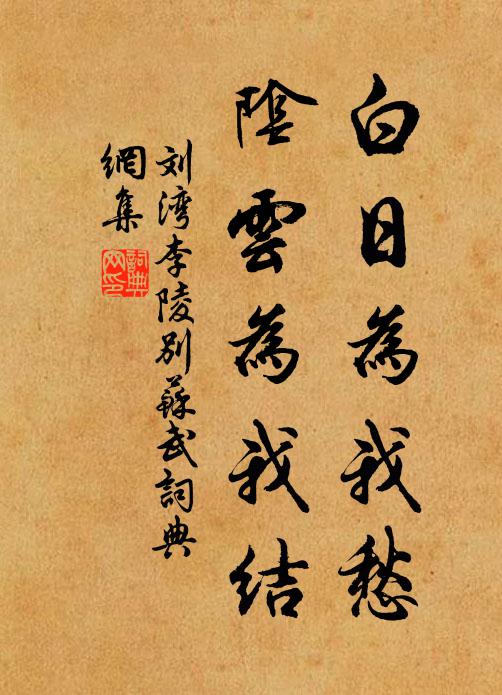 白日為我愁
陰雲為我結
刘湾李陵别蘇武詞典
網集
詞典
网印